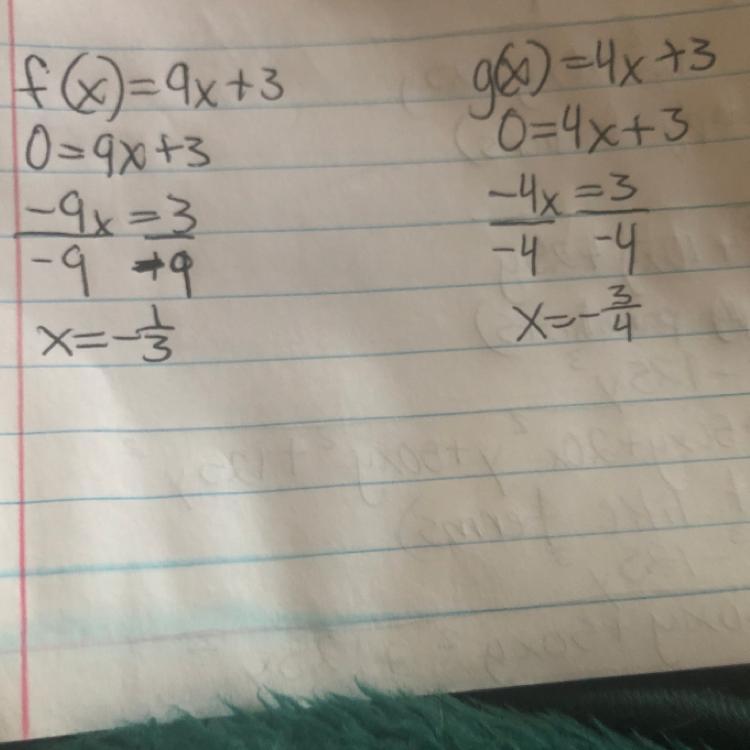 f(x)=9x+3
0=9x+3
-9x=3
-9 -9
x=-1/3
g(x)=4x+3
0=4x+3
-4x=3
-4 -4
x=-3/4